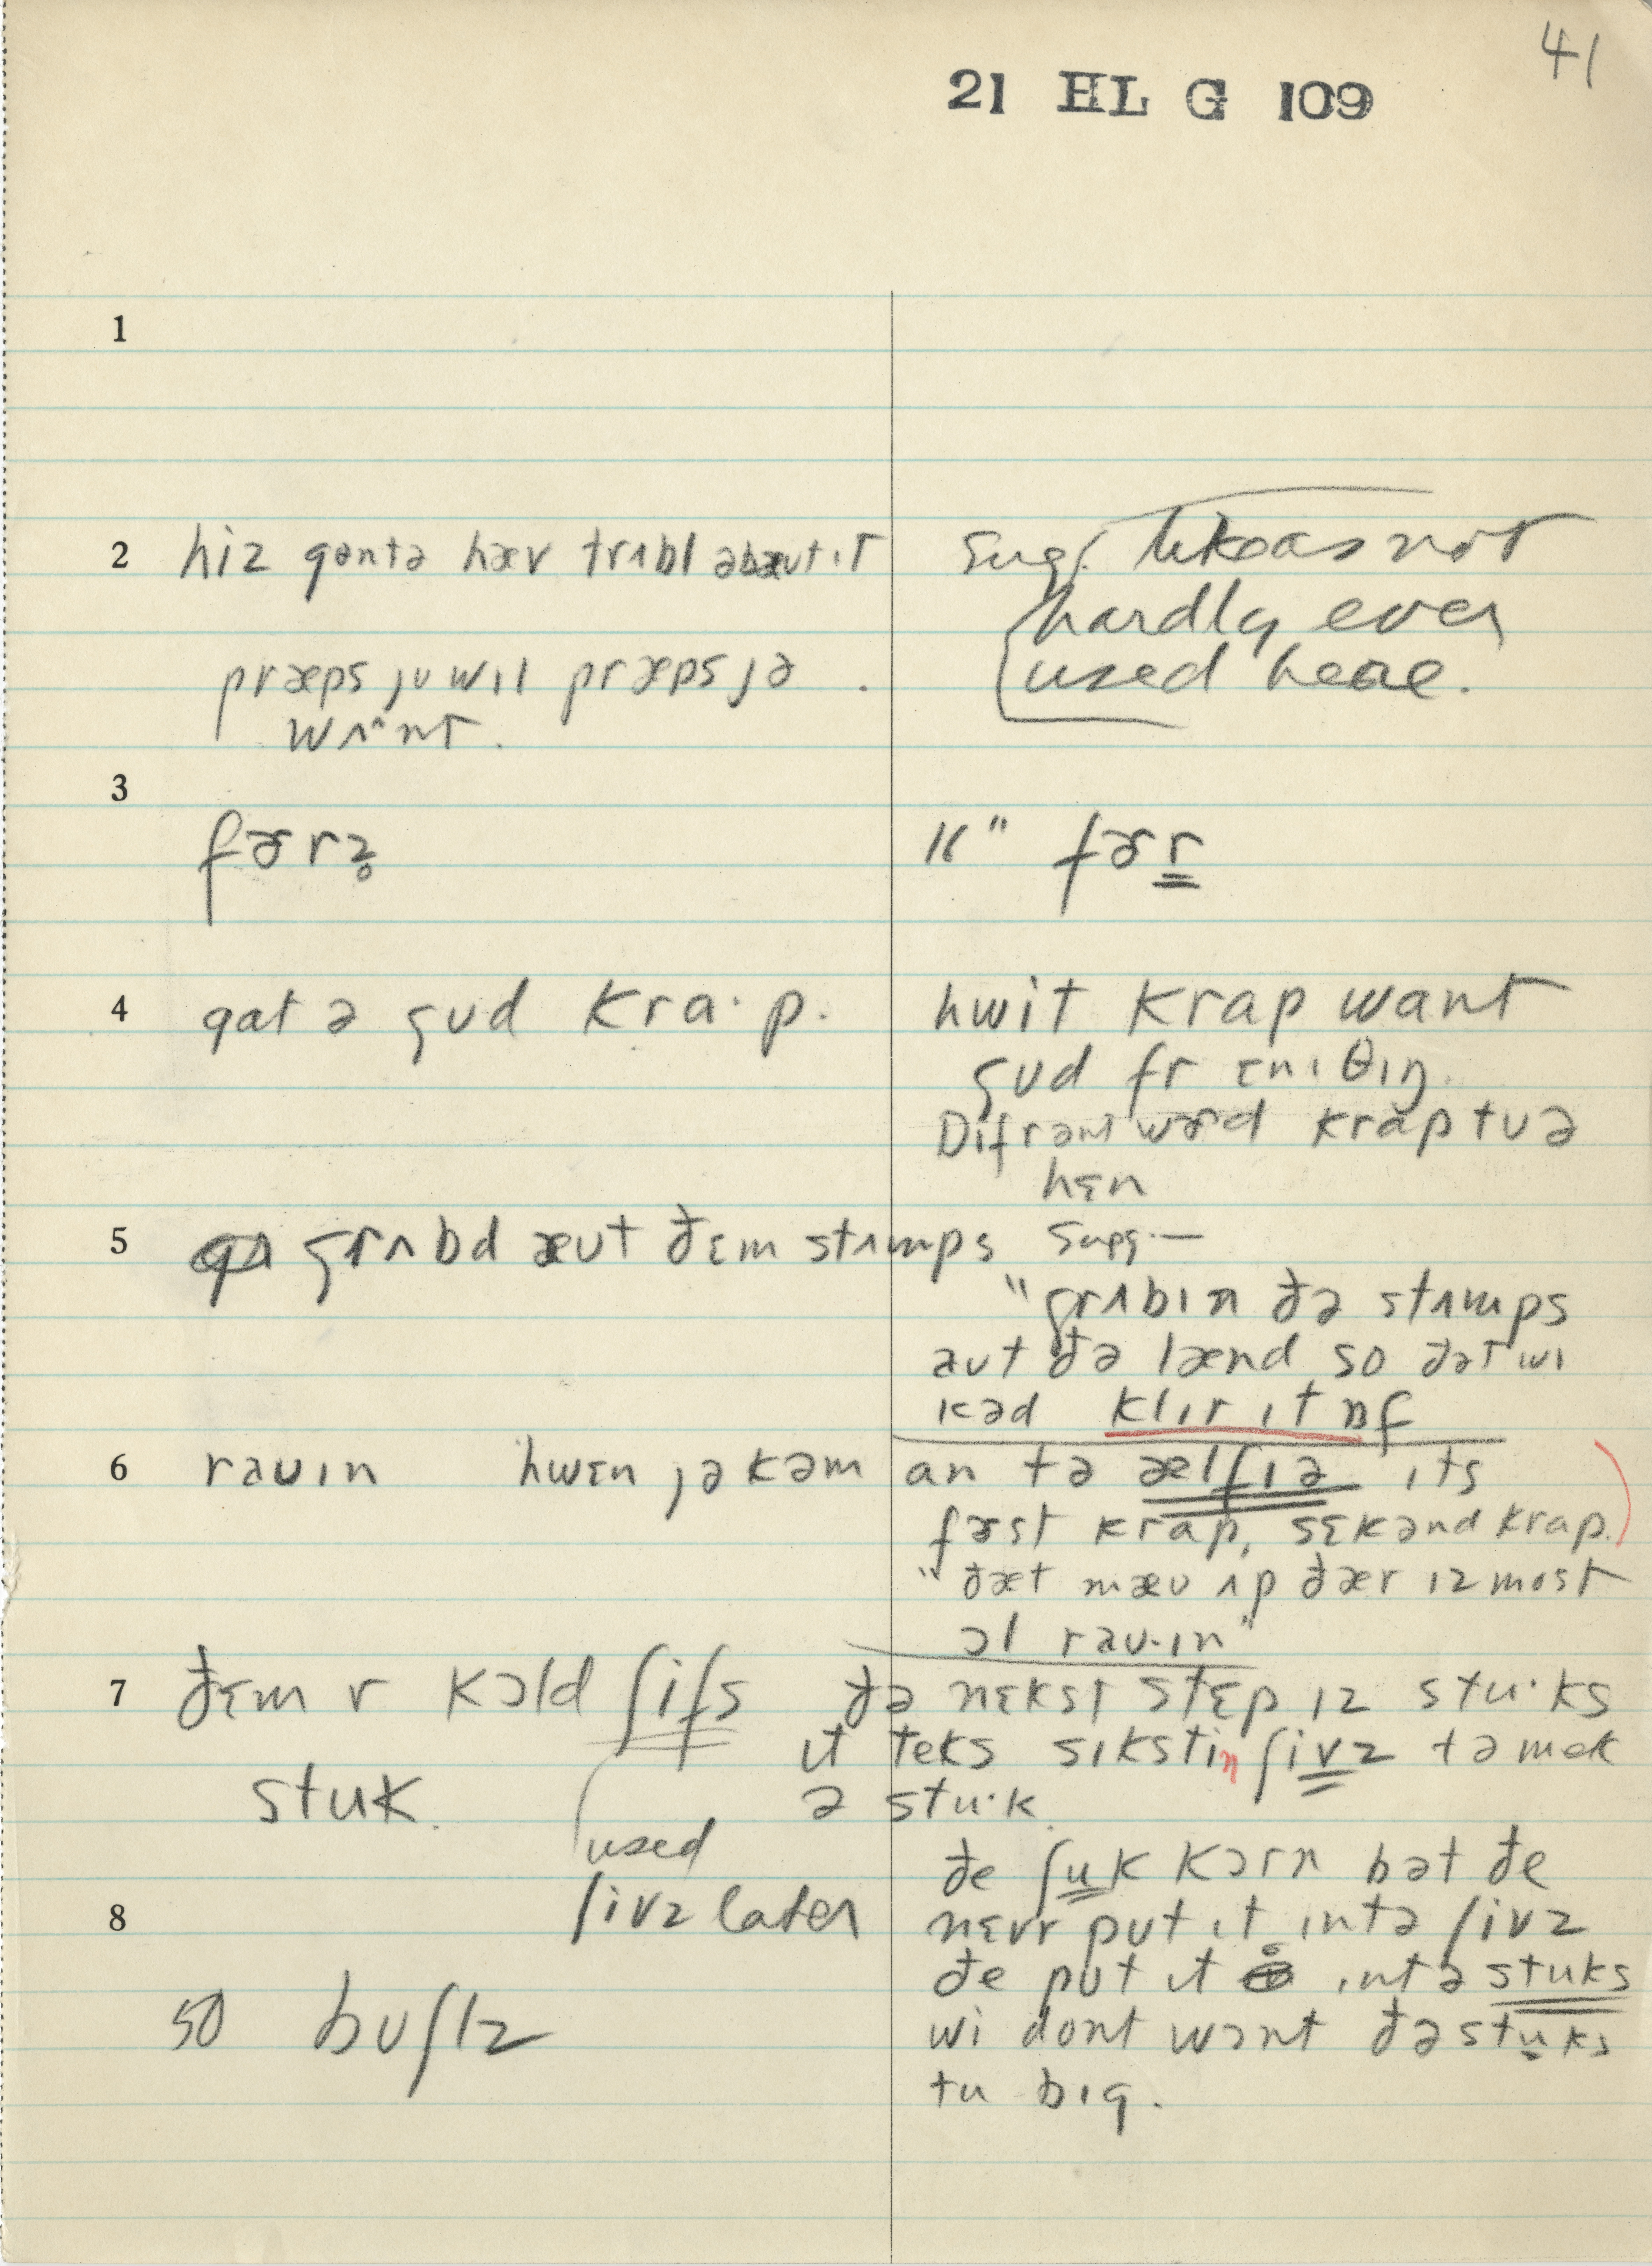 41
21 HL G 109
1
2 hiz gɔntə hæv trʌbl əbæut ɪt
præps ju wɪl præps jə
wʌnt.
sug. likeas not
hardly ever
used heae.
3
fɚrz̥
" fɚr
4 gat ə gud kra·p.
hwit krap want
gud fr ɛnɪθɪŋ.
Difrənt wɚd krap tuə
hɛn
5 grʌbd æut ðɛm stʌmps
sugg.—
"grʌbɪn ðə stʌmps
aut ðə lænd so ðət wɪ
kəd klɪr ɪt ɒf
6 rauɪn hwɛn jə kəm an tə ælfɪə ɪts
fɚst krap, sɛkənd krap.
"ðæt mæu ʌp ðær ɪz most
ɔl rau·ɪn"
7 ðɛm r kɔld ʃifs
stuk.
ðə nɛkst stɛp ɪz stu·ks
ɪt teks sɪkstin ʃivz tə mek
ə stu·k.
used
ʃivz later
ðe ʃuk kɔrn bət ðe
8 nɛvr put ɪt ɪntə ʃivz
ðe put ɪt ɪntə stuks
so buʃlz
wi dont wɔnt ðə stuks
tu bɪg.